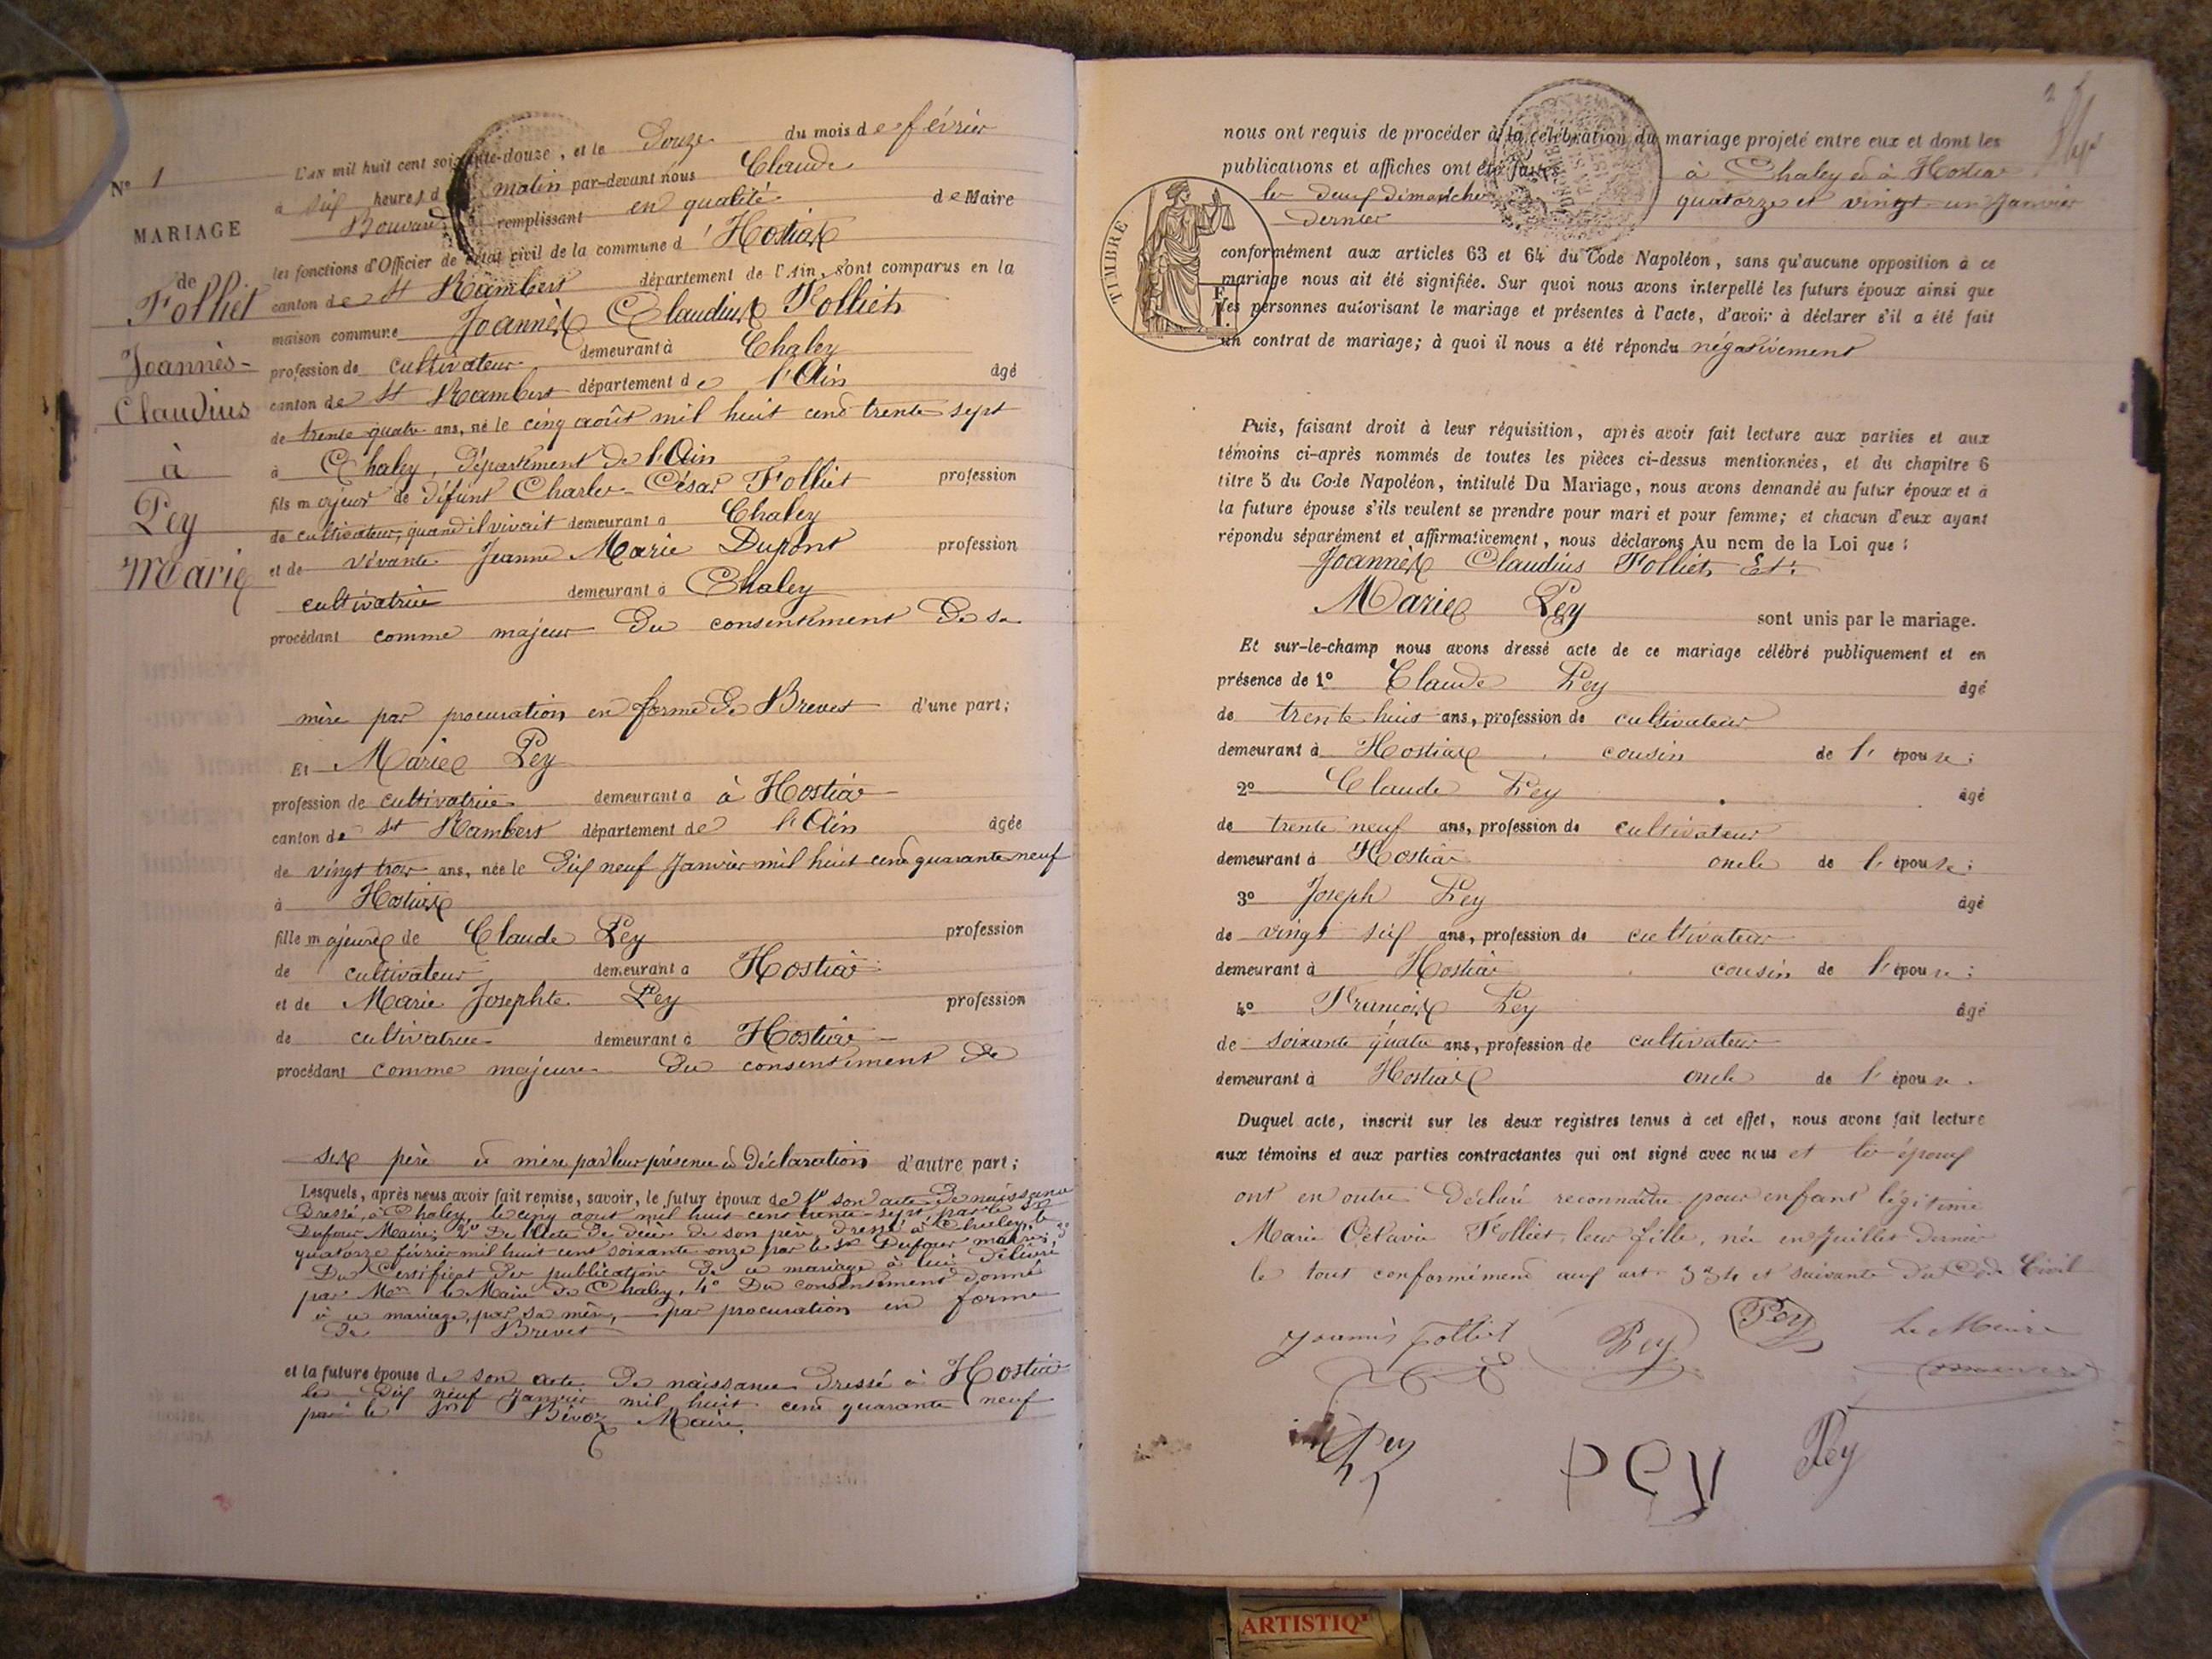 N° 1
MARIAGE
de
Folliet
Joannès-
Claudius
à
Pey
Marie
L'an mil huit cent soixante-douze, et le Douze du mois de février
à six heures d matin par-devant nous Claude
remplissant en qualité de Maire
les fonctions d'Officier de l'état civil de la commune d'Hostiax
canton de St Rambert département de l'Ain, sont comparus en la
maison commune Joannès Claudius Folliet
profession de cultivateur demeurant à Chaley
canton de St Rambert département de l'Ain âgé
de trente quatre ans, né le cinq août mil huit cent trente sept
à Chaley, département de l'Ain
fils majeur de défunt Charles-César Folliet profession
de cultivateur, quand il vivait demeurant à Chaley
et de vivante Jeanne Marie Dupont profession
cultivatrice demeurant à Chaley
procédant comme majeur du consentement de sa
mère par procuration en forme de Brevet d'une part;
Et Marie Pey
profession de cultivatrice demeurant à à Hostiax
canton de St Rambert département de l'Ain âgée
de vingt trois ans, née le dix neuf Janvier mil huit cent quarante neuf
à Hostiax
fille majeure de Claude Pey profession
de cultivateur demeurant à Hostiax
et de Marie Josephte Pey profession
de cultivatrice demeurant à Hostiax
procédant comme majeure du consentement de
ses père et mère par leur présence et déclaration d'autre part;
Lesquels, après nous avoir fait remise, savoir, le futur époux de 1° son acte de naissance
dressé, à Chaley, le cinq août mil huit cent trente-sept, par le Sr
Dufour Maire; 2° de l'acte de décès de son père, dressé à Chaley, le
quatorze février mil huit cent soixante onze par le Sr Dufour maire; 3°
Du Certificat des publications de ce mariage à lui délivré
par Mr le Maire de Chaley, 4° Du consentement donné
à ce mariage, par sa mère, par procuration en forme
de Brevet
et la future épouse de son acte de naissance dressé à Hostiax
le dix neuf Janvier mil huit cent quarante neuf
par le Sr Bévoz Maire.
nous ont requis de procéder à la célébration du mariage projeté entre eux et dont les
publications et affiches ont été faites à Chaley et à Hostiax
les deux dimanches quatorze et vingt-un Janvier
dernier
TIMBRE
conformément aux articles 63 et 64 du Code Napoléon, sans qu'aucune opposition à ce
mariage nous ait été signifiée. Sur quoi nous avons interpellé les futurs époux ainsi que
les personnes autorisant le mariage et présentes à l'acte, d'avoir à déclarer s'il a été fait
un contrat de mariage; à quoi il nous a été répondu négativement
Puis, faisant droit à leur réquisition, après avoir fait lecture aux parties et aux
témoins ci-après nommés de toutes les pièces ci-dessus mentionnées, et du chapitre 6
titre 5 du Code Napoléon, intitulé Du Mariage, nous avons demandé au futur époux et à
la future épouse s'ils veulent se prendre pour mari et pour femme; et chacun d'eux ayant
répondu séparément et affirmativement, nous déclarons Au nom de la Loi que :
Joannès Claudius Folliet, Et:
Marie Pey
sont unis par le mariage.
Et sur-le-champ nous avons dressé acte de ce mariage célébré publiquement et en
présence de 1° Claude Pey âgé
de trente huit ans, profession de cultivateur
demeurant à Hostiax cousin de l'épouse;
2° Claude Pey âgé
de trente neuf ans, profession de cultivateur
demeurant à Hostiax oncle de l'épouse;
3° Joseph Pey âgé
de vingt six ans, profession de cultivateur
demeurant à Hostiax cousin de l'épouse;
4° François Pey âgé
de soixante quatre ans, profession de cultivateur
demeurant à Hostiax oncle de l'épouse.
Duquel acte, inscrit sur les deux registres tenus à cet effet, nous avons fait lecture
aux témoins et aux parties contractantes qui ont signé avec nous et les époux
ont en outre déclaré reconnaître pour enfant légitime
Marie Octavie Folliet, leur fille, née en Juillet dernier
le tout conformément aux art. 334 et suivants du Code Civil
Joannès Folliet Pey Pey Le Maire
Pey PEY Pey
ARTISTIQ